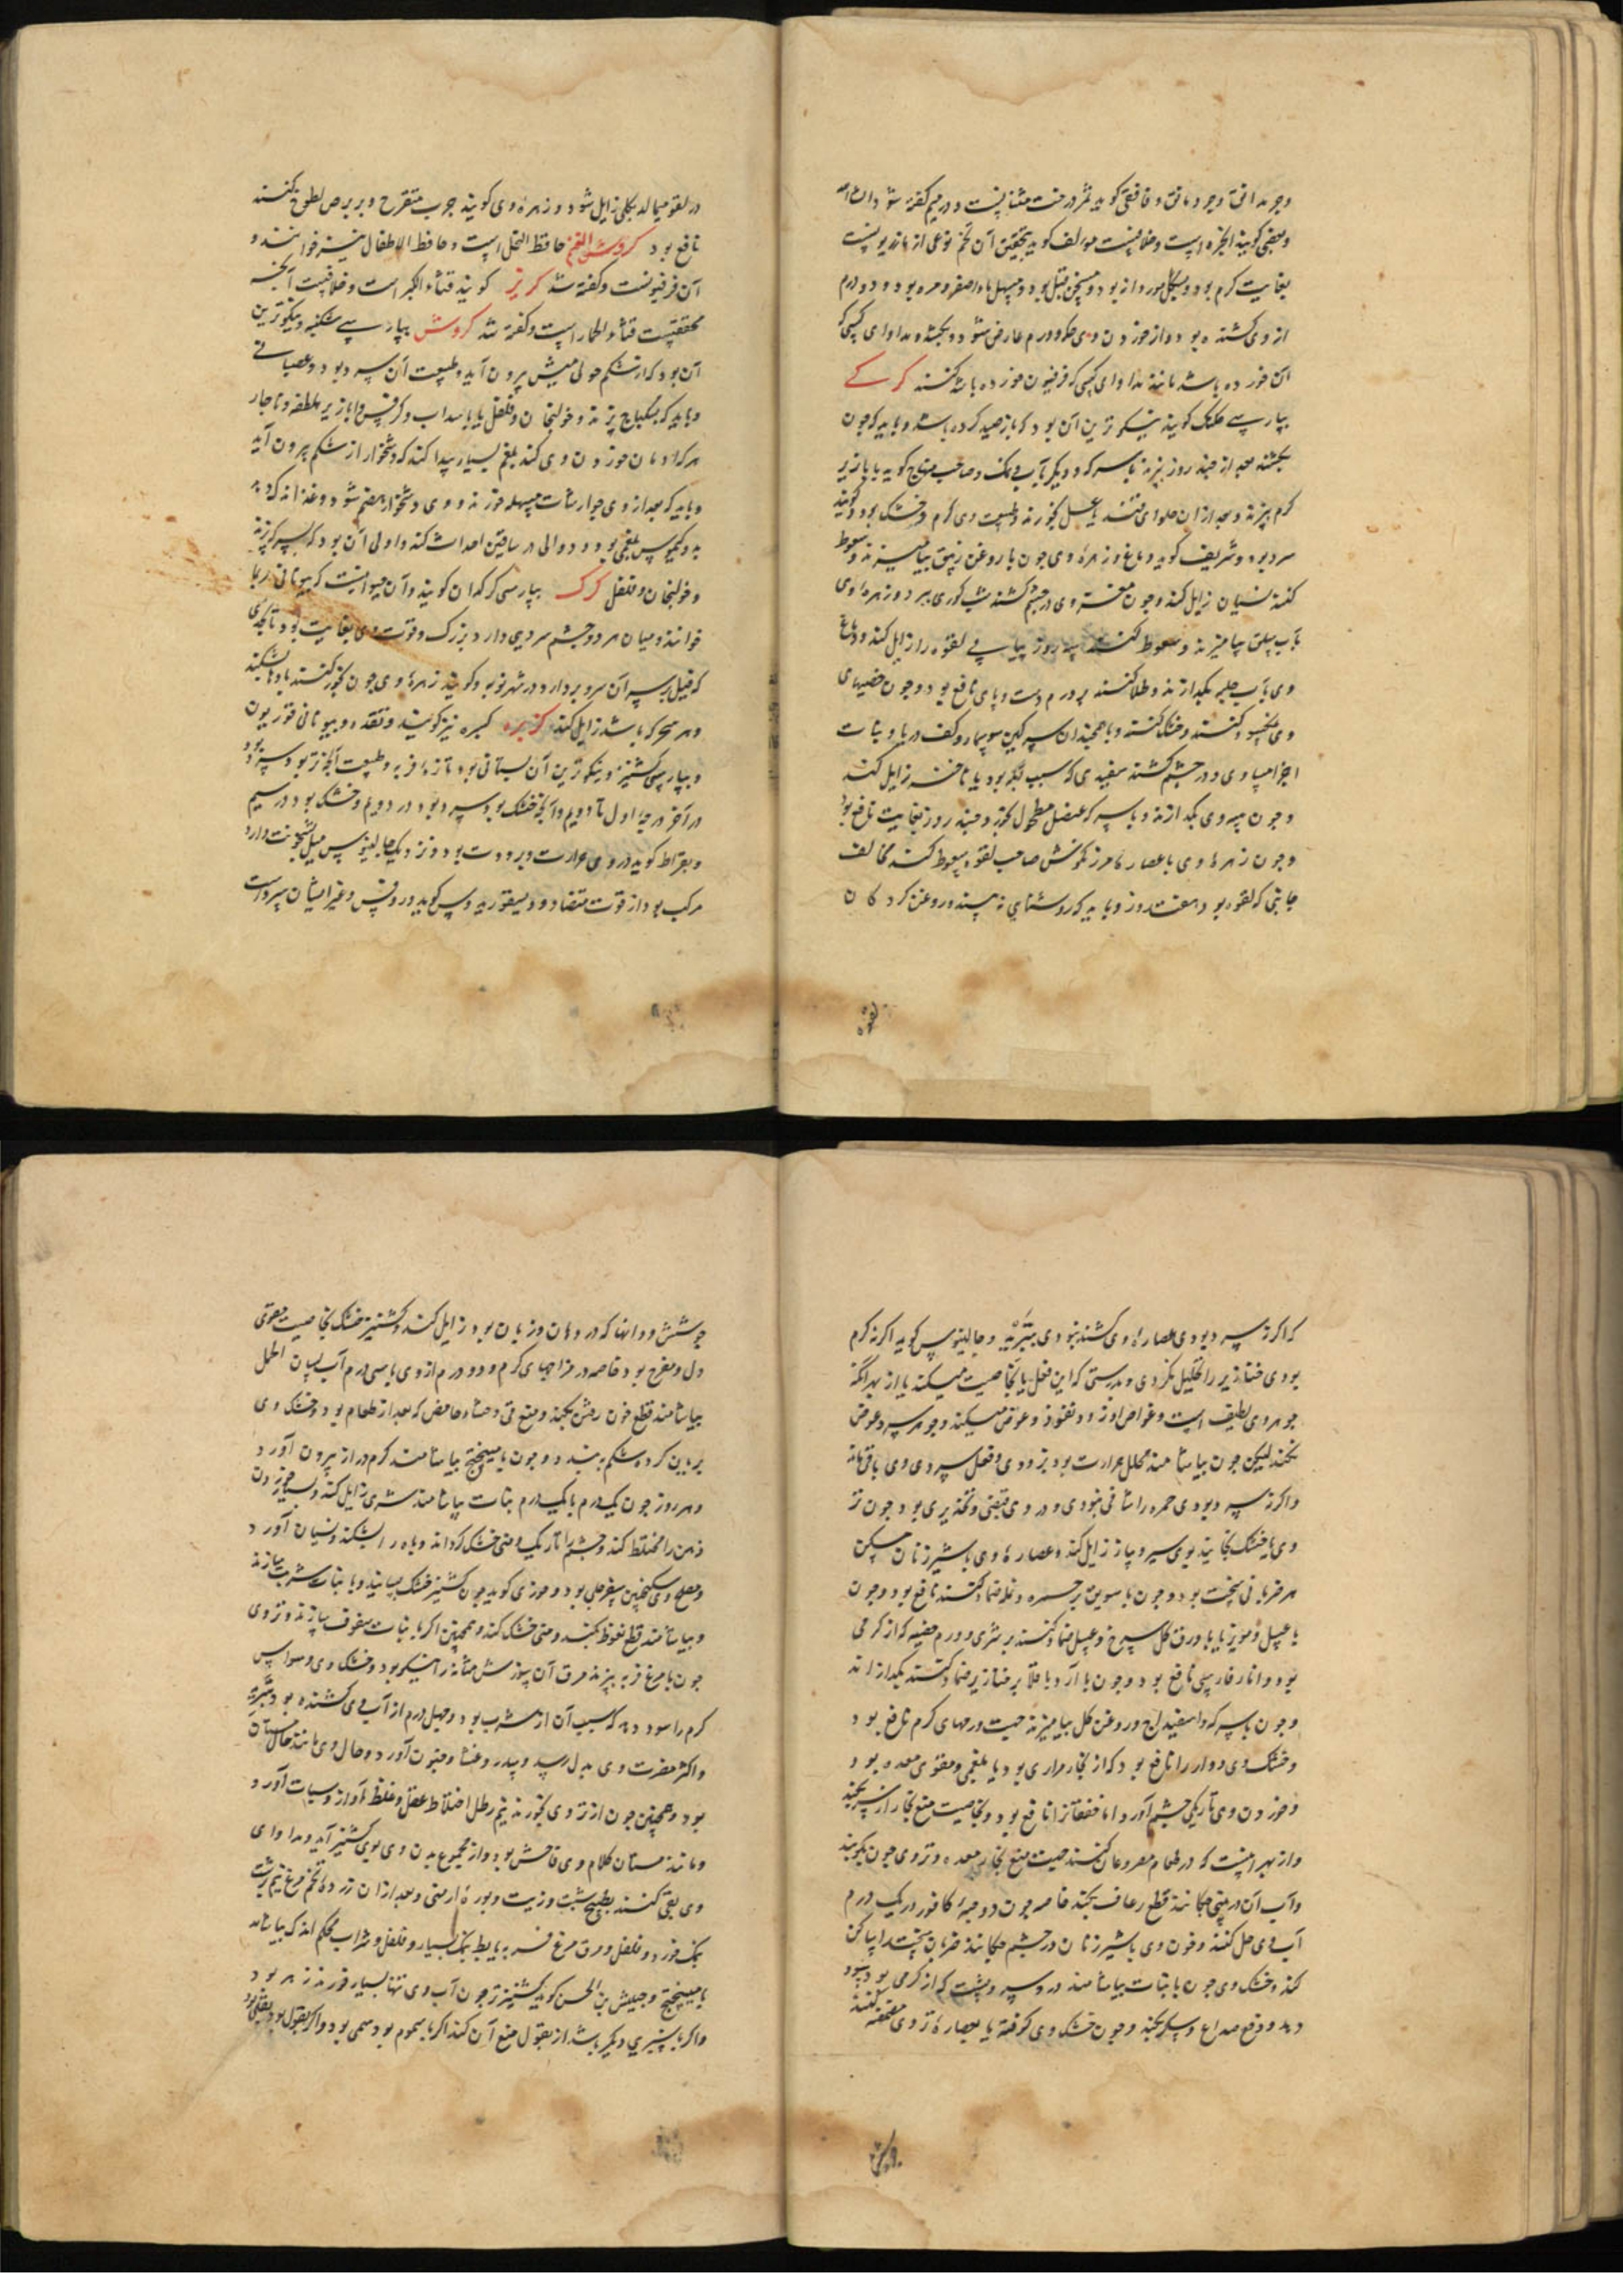 وجوبه افق و جرد مانق و قافقی کویند ثمر درخت مثنا نیست و در میم کفته شود ان شا الله
و بعضی کویند انجره است و خلافست مولف کوید بتحقیق آن تخم نوعی از مازریونست
بغایت کرم بود و بشکل مورد دانه بود و مسخن قتال بود و مسهل ماء اصفر و مره بود و دو درم
از وی کشنده بود و از خوردن وی حکه و ورم عارض شود و بکشد و مداوای کسی که
آن خورده باشد مانند مداوای کسی که فرفیون خورده باشد کنند کرکی
بپارسی کلنک کویند نیکوترین آن بود که باز صید کرده باشد و باید که چون
بکشند بعد از چند روز بپزند با سرکه و دیکر بآب و نمک و صاحب منهاج کوید با بازیر
کرم بپزند و بعد از ان حلوای قند یا عسل بخورند و طبیعت وی کرم و خشک بود و کویند
سرد بود و شریف کوید دماغ و زهره وی چون با روغن زنبق بیامیزند و سعوط
کنند نسیان زایل کند و چون مغز وی در چشم کشند شب کوری ببرد و زهره وی
بآب سلق بیامیزند و سعوط کنند سه روز پیاپی لقوه را زایل کند و دماغ
وی بآب حلبه بکدازند و طلا کنند بر ورم دست و پای نافع بود و چون خصیهای
وی نمکسود کنند و خشک کنند و با همچندان سرکین سوسمار و کف دریا و نبات
اجزا مساوی و در چشم کشند سفیدی که سبب آبله بود یا ناخنه زایل کند
و چون پیه وی بکدازند و با سرکه عنصل مطحول بخورد چند روز بغایت نافع بود
و چون زهره وی با عصاره مرزنکوش صاحب لقوه سعوط کند مخالف
جانبی که لقوه بود هفت روز و باید که روشنایی نه بیند و روغن کردکان
لقوه
در لقوه میمالد بکلی زایل شود و زهره وی کویند جرب متقرح و بر برص لطوخ کنند
نافع بود کروش الغنم حافظ النحل است و حافظ الاطفال نیز خوانند و
آن فرفیونست و کفته شد کریز کویند قثاء الکبر است و خلافست آنچه
محققست قثاء الحمار است و کفته شد کروش بپارسی شکنبه و نیکوترین
آن بود که از شکم حولی میش بیرون آید و طبیعت آن سرد بود و عصبانی
و باید که بسکباج پزند و خولنجان و فلفل یا با سداب و کرفس و ابازیر ملطفه و ناچار
هرکه ادمان خوردن وی کند بلغم بسیار پیدا کند که دشخوار از شکم بیرون آید
و باید که بعد از وی جوارشات مسهله خورند و وی دشخوار هضم شود و غذا اندک دهد
بد و کیموس بلغمی بود و دوالی در ساقین احداث کند و اولی آن بود که بسرکه پزند
و خولنجان و فلفل کرک بپارسی کرکدان کویند و آن حیوانیست که بیونانی ریما
خوانند و میان هر دو چشم سرویی دارد بزرک و قوت وی بغایت بود تا بحدی
که فیل بر سر آن سرو بردارد و در شهر نوبه و کویند زهره وی چون بخور کنند بادها بشکند
و هر سحر که باشد زایل کند کزبره کسبره نیز کویند و نقده و بیونانی قوریون
و بپارسی کشنیز و نیکوترین آن بستانی بود تازه فربه و طبیعت آنچه تر بود سرد بود
در آخر درجه اول تا دویم و آنچه خشک بود سرد بود در دویم و خشک بود در سیم
و بقراط کوید در وی حرارت و برودت بود و نزدیک جالینوس میل بسخونت دارد
مرکب بود از قوت متضاد و دیسقوریدوس کوید و روفس و غیر ایشان سردست
که اکر نه سرد بودی عصاره وی کشنده نبودی بتبرید و جالینوس کوید اکر نه کرم
بودی خنازیر را تحلیل نکردی و بدرستی که این فعل یا بخاصیت میکند یا از بهر آنکه
جوهر وی لطیف است و غواص و زود نفوذ و غوص میکند و جوهر سرد غوص
نکند لیکن چون بیاشامند محلل حرارت بود بزودی و فعل سردی وی باقی ماند
و اکر نه سرد بودی حمره را شافی نبودی و در وی قبضی و تخدیری بود چون تر
وی یا خشک بخایند بوی سیر و پیاز زایل کند و عصاره وی با شیر زنان مسکن
هر ضربانی سخت بود و چون با سویق بر حمره و نمله ضماد کنند نافع بود و چون
با عسل و مویز یا با ورق کل سرخ و عسل ضماد کنند بر شری و ورم خصیه که از کرمی
بود و نار فارسی نافع بود و چون با آرد باقلا بر خنازیر ضماد کنند بکدازاند
و چون با سرکه و اسفیداج و روغن کل بیامیزند جهت ورمهای کرم نافع بود
و خشک وی دوار را نافع بود که از بخار مراری بود یا بلغمی و مقوی معده بود
و خوردن وی تاریکی چشم آورد اما خفقانرا نافع بود و بخاصیت منع بخار از سر بکند
و از بهر اینست که در طعام مصروعان کنند جهت منع بخار معده و تر وی چون بکوبند
و آب آن در بینی چکانند قطع رعاف بکند خاصه چون دو حبه کافور در یک درم
آب وی حل کنند و چون وی با شیر زنان در چشم چکانند ضربان سخت را ساکن
کند و خشک وی چون با نبات بیاشامند درد سر و پشت که از کرمی بود سود
دهد و دفع صداع و سکر بکند و چون خشک وی کوفته یا بعصاره تر وی مضمضه کنند
جوشش و دانها که در دهان و زبان بود زایل کند و کشنیز خشک بخاصیت مقوی
دل و مفرح بود خاصه در مزاجهای کرم و دو درم از وی با سی درم آب لسان الحمل
بیاشامند قطع خون رفتن بکند و منع قی و جشاء حامض که بعد از طعام بود و خشک وی
بریان کرده شکم ببندد و چون با میبختج بیاشامند کرم دراز بیرون آورد
و هر روز چون یک درم با یک درم نبات بیاشامند شری زایل کند و بسیار خوردن
ذهن را مختلط کند و چشم را تاریک و منی خشک کرداند و باه را بشکند و نسیان آورد
و مصلح وی سکنجبین سفرجلی بود و خوزی کوید چون کشنیز خشک بسایند و با نبات شربت سازند
و بیاشامند قطع نعوظ بکند و منی خشک کند و همچنین اکر با نبات سفوف سازند و تر وی
چون با مرغ فربه بپزند مرق آن سوزش مثانه را نیکو بود و خشک وی وسواس
کرم را سود دهد که سبب آن از شرب بود و چهل درم از آب وی کشنده بود بتبرید
و اکثر مضرت وی بدل رسد و سدر و غشا و جنون آورد و حال وی مانند حال مستان
بود و همچنین چون از تر وی بخورند نیم رطل اختلاط عقل و غلظ آواز و سبات آورد
و مانند مستان کلام وی فاحش بود و از مجموع بدن وی بوی کشنیز آید و مداوای
وی بقی کنند بطبیخ شبت و زیت و بوره ارمنی و بعد از ان زرده تخم مرغ نیم برشت
بنمک خورد و فلفل و مرق مرغ فربه یا بط بنمک بسیار و فلفل و شراب محکم اندک بیاشامد
با میبختج و حبیش بن الحسن کوید کشنیز تر چون آب وی تنها بسیار خورند زهر بود
و اکر با سبزی دیکر باشد از بقول منع آن کند اکر با سموم بود سمی بود و اکر با بقول بود بقلی بود